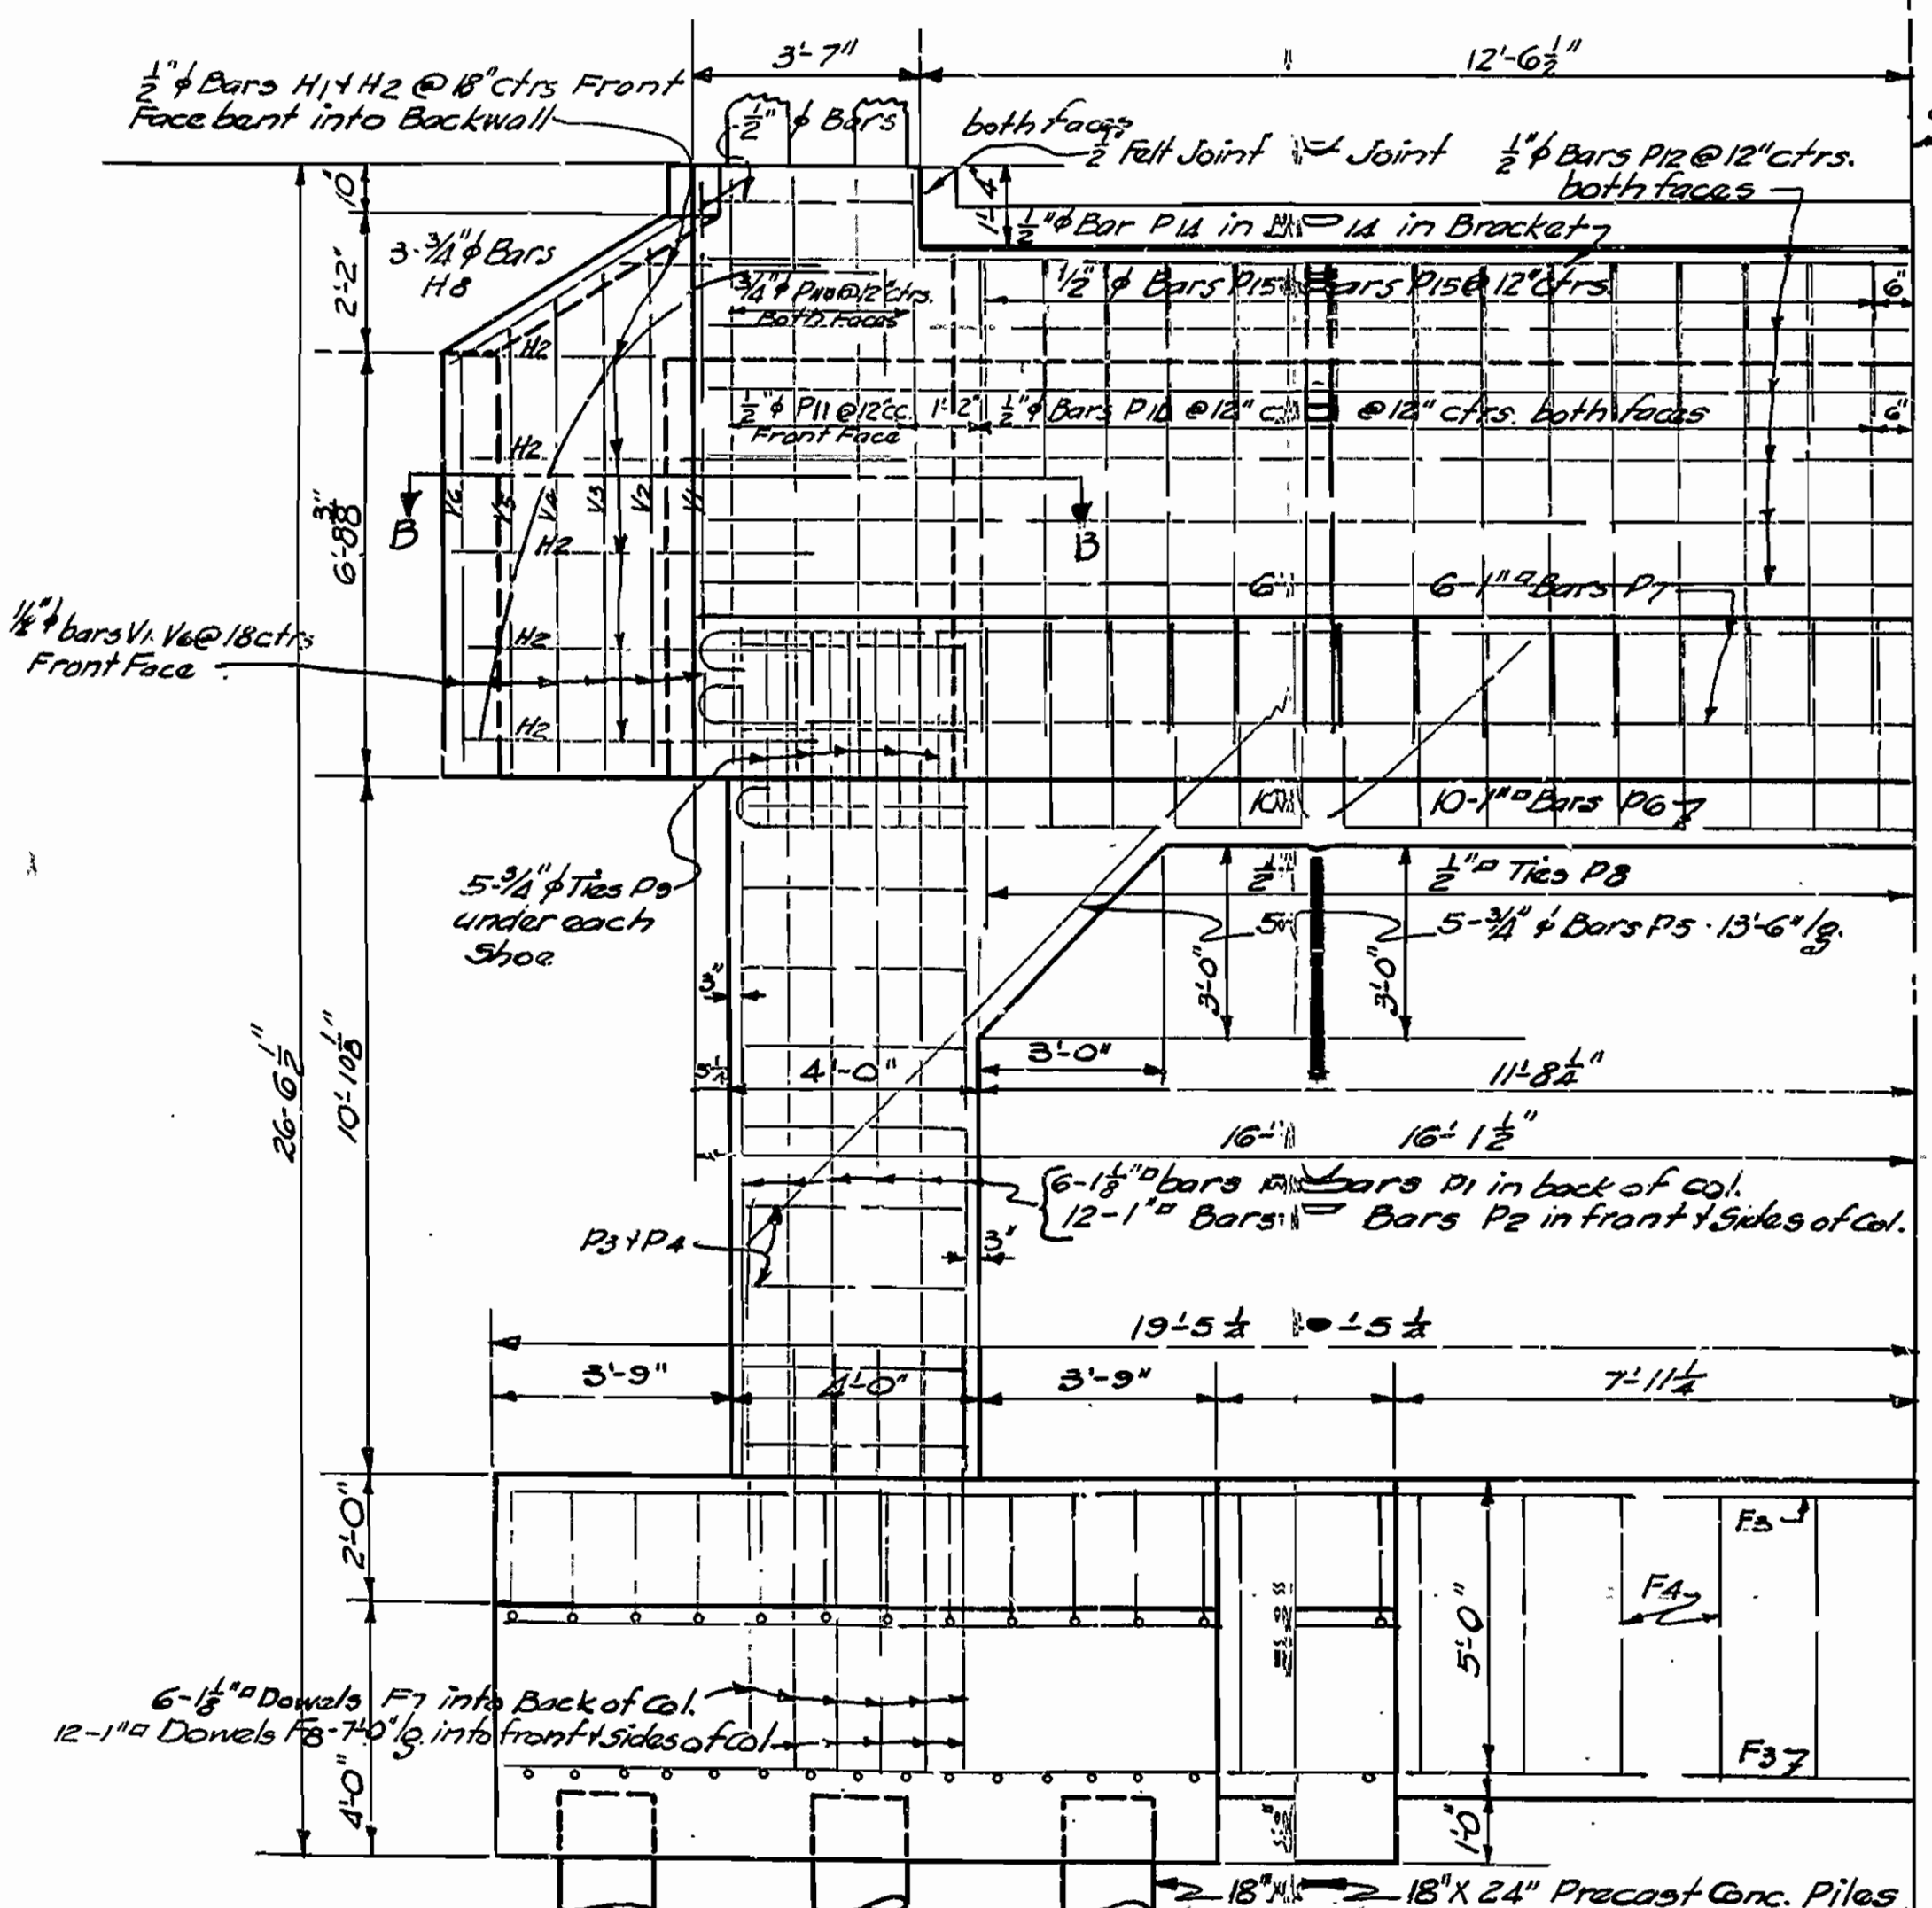 3'-7"
12'-6½"
½"ϕ Bars H1 & H2 @ 18" ctrs Front
Face bent into Backwall
½"ϕ Bars
both faces
½" Felt Joint
Joint
½"ϕ Bars P12 @ 12" ctrs.
both faces
10"
1'-4"
½"ϕ Bar P14 in
14 in Bracket
3-¾"ϕ Bars
H8
2'-2"
@ 12" ctrs.
Both Faces
½"ϕ Bars P15
Bars P15 @ 12" ctrs.
6"
H2
½"ϕ P11 @ 12" cc.
Front Face
1'-2"
½"ϕ Bars
@ 12" c
@ 12" ctrs. both faces
6"
H2
V6
V5
V4
V3
V2
V1
B
B
H2
6'-8⅜"
6-1"□ Bars P7
bars V1 V6 @ 18 ctrs
Front Face
H2
H2
10-1"□ Bars P6
5-¾"ϕ Ties P9
under each
Shoe
½"
½"□ Ties P8
5-¾"ϕ Bars P5 - 13'-6" lg.
3'-0"
3'-0"
3"
3'-0"
3½
4'-0"
11'-8¼"
26'-6½"
10'-10⅛"
16'-
16'-1½"
6-1⅛"□ bars
bars P1 in back of col.
12-1"□ Bars
Bars P2 in front & Sides of Col.
P3 & P4
3"
19'-5¼
-5¼
3'-9"
4'-0"
3'-9"
7'-11¼
2'-0"
F3
F4
5'-0"
6-1⅛"□ Dowels F7 into Back of Col.
12-1"□ Dowels F8-7'-0" lg. into front & sides of Col.
F3
4'-0"
1'-0"
18"X
18"X 24" Precast Conc. Piles